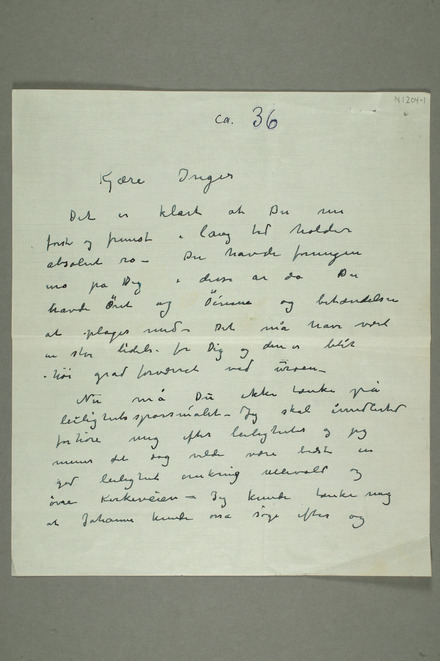 N1204-1
ca. 36
Kjære Inger
Det er klart at Du nu
først og fremst i lang tid holder
absolut ro – Du havde
på Dig i disse år da Du
havde Öret og Öinene og betændelsen
at plages med – Det må have vært
en stor lidelse for Dig og den er blit
i höi grad forværret ved uroen –
Nu må Du ikke tænke på
leilighetsspørsmålet – Jeg skal imidlertid
forhöre mig efter leiligheter og jeg
mener det dog vilde være bedst en
god leilighet omkring Ullevold og
övre Kirkeveien – Jeg kunde tænke mig
at Johanne kunde også söge efter og